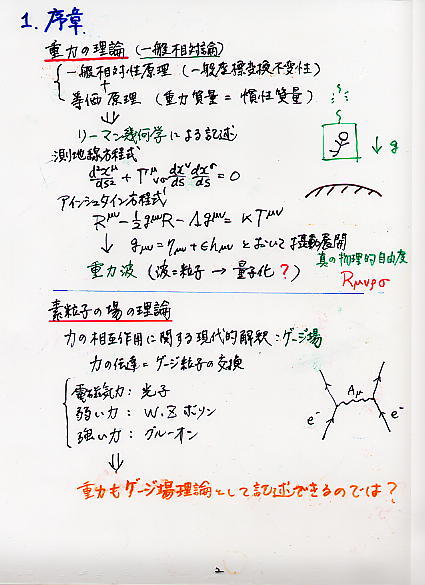 1. 序章
重力の理論 (一般相対論)
一般相対性原理 (一般座標変換不変性)
+
等価原理 (重力質量 = 慣性質量)
⇓
リーマン幾何学による記述
↓ g
測地線方程式
d²x^μ/ds² + Γ^μ_νσ dx^ν/ds dx^σ/ds = 0
アインシュタイン方程式
R^μν - 1/2 g^μν R - Λg^μν = κT^μν
↓ g_μν = η_μν + εh_μν とおいて摂動展開
重力波 (波=粒子 → 量子化?)
真の物理的自由度
R_μνρσ
素粒子の場の理論
力の相互作用に関する現代的解釈:ゲージ場
力の伝達=ゲージ粒子の交換
電磁気力: 光子
弱い力: W, Z ボソン
強い力: グルーオン
A_μ
e⁻ e⁻
⇓
重力もゲージ場理論として記述できるのでは?
2